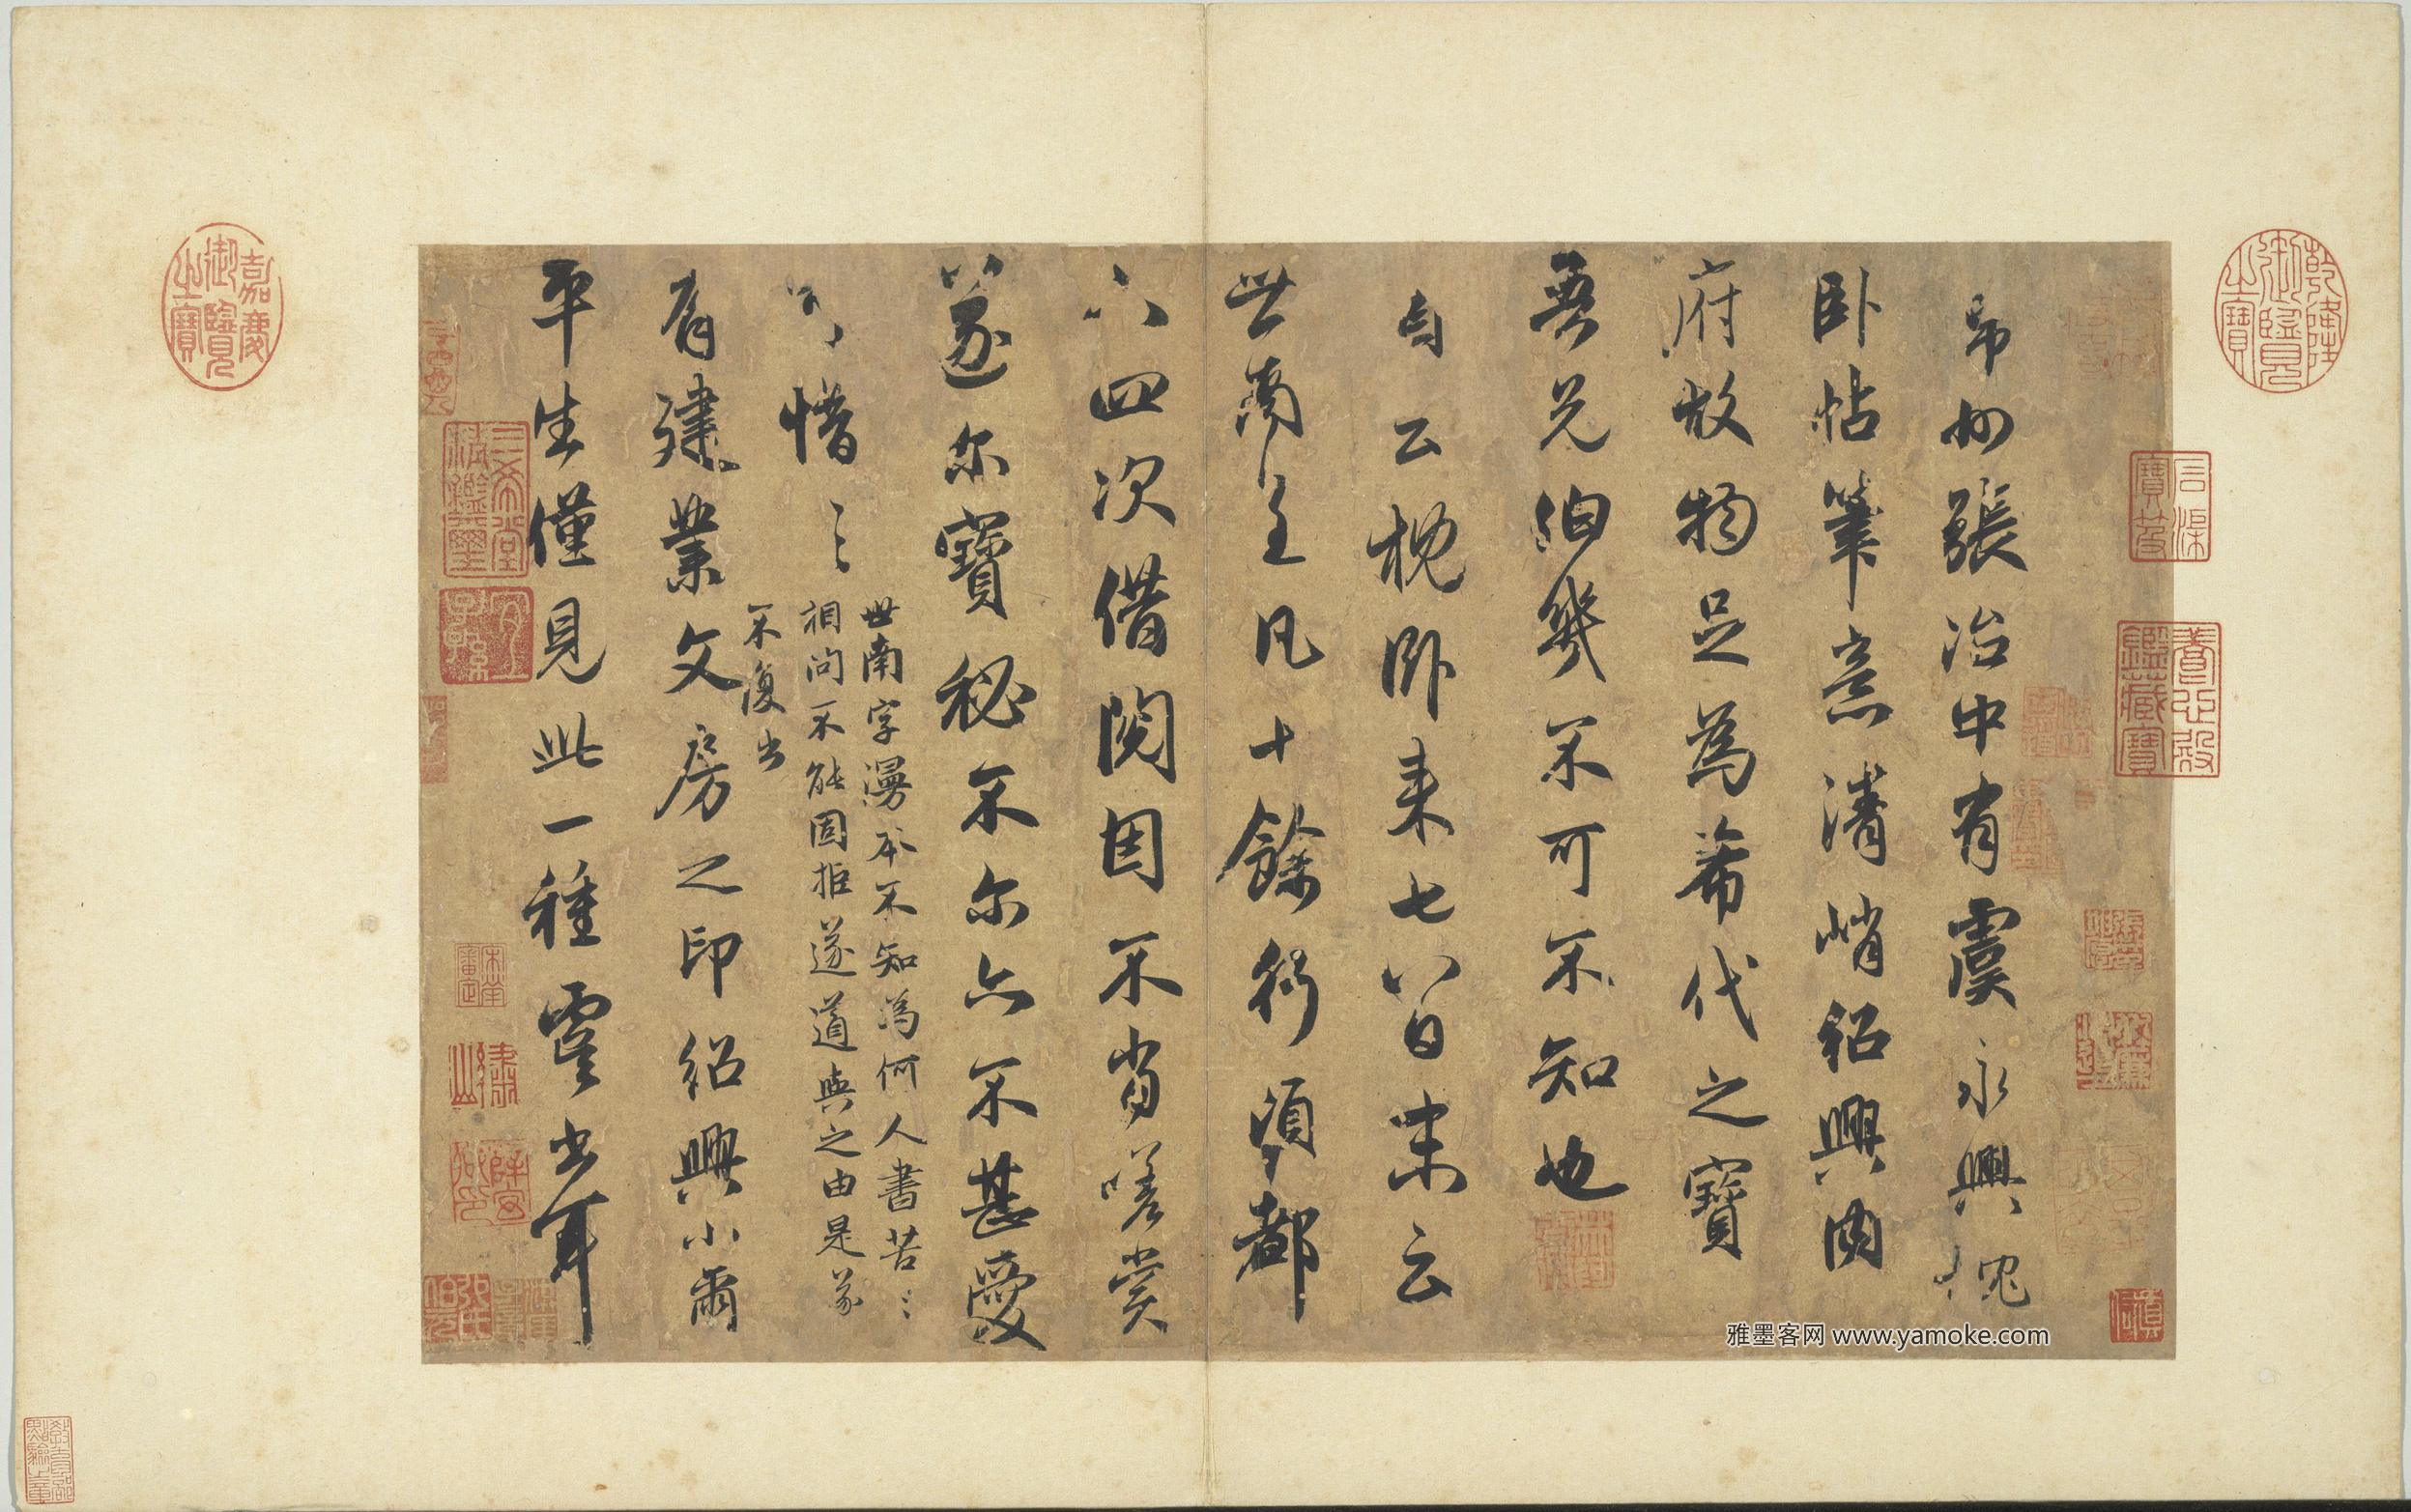 帛州張治中有虞永興枕
卧帖筆意清峭紹興內
府故物足為希代之寶
吾兄伯幾不可不知也
首云枕卧来七八日末云
世南呈凡十餘行頃都
下四次借閱因不肯嗟賞
遂尔寶秘不尔亦不甚愛
惜〻
世南字漫本不知為何人書苦〻
相問不能固拒遂道與之由是遂
不復出
有建業文房之印紹興小璽
平生僅見此一種虞書耳
乾隆御覽之寶
嘉慶御覽之寶
石渠寶笈
養心殿鑑藏寶
三希堂精鑑璽
宜子孫
雅墨客网 www.yamoke.com